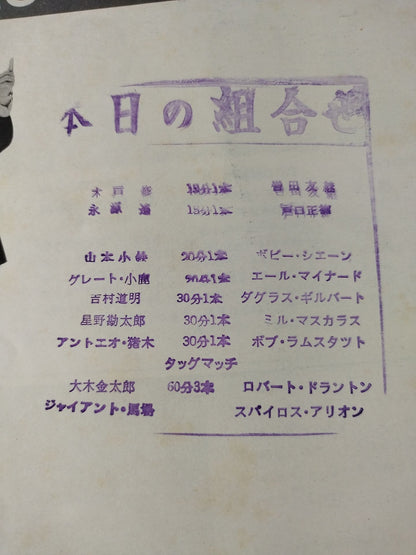 本日の組合せ
木戸修 15分1本 岩田友
永源遙 15分1本 戸口正徳
山本小鉄 20分1本 ボビー・シエーン
グレート・小鹿 分1本 エール・マイナード
吉村道明 30分1本 ダグラス・ギルバート
星野勘太郎 30分1本 ミル・マスカラス
アントニオ・猪木 30分1本 ボブ・ラムスタット
タッグマッチ
大木金太郎 60分3本 ロバート・ドラントン
ジャイアント・馬場 スパイロス・アリオン